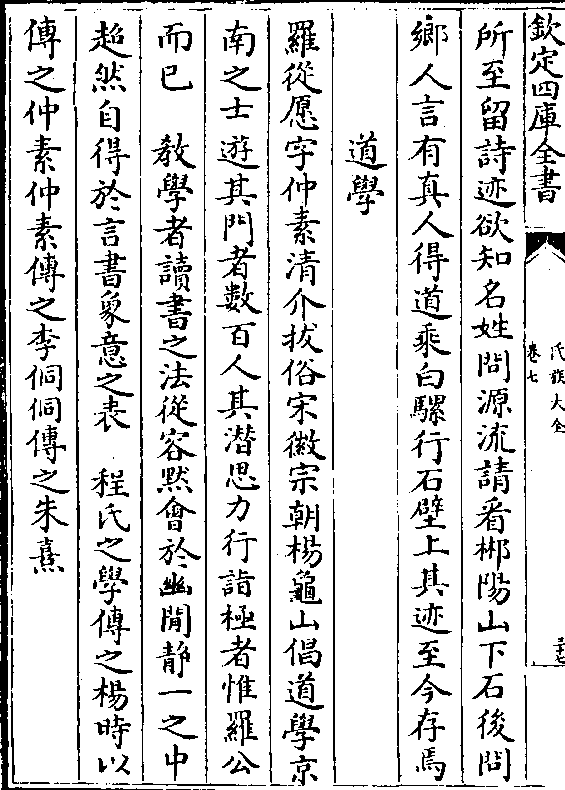 欽定四庫全書
氏族大全
卷七
所至留詩迹欲知名姓問源流請看郴陽山下石後問
鄉人言有真人得道乘白騾行石壁上其迹至今存焉
道學
羅從愿字仲素清介拔俗宋徽宗朝楊龜山倡道學京
南之士遊其門者數百人其潛思力行詣極者惟羅公
而已　教學者讀書之法從容默會於幽閒靜一之中
超然自得於言書象意之表　程氏之學傳之楊時以
傳之仲素仲素傳之李侗侗傳之朱熹